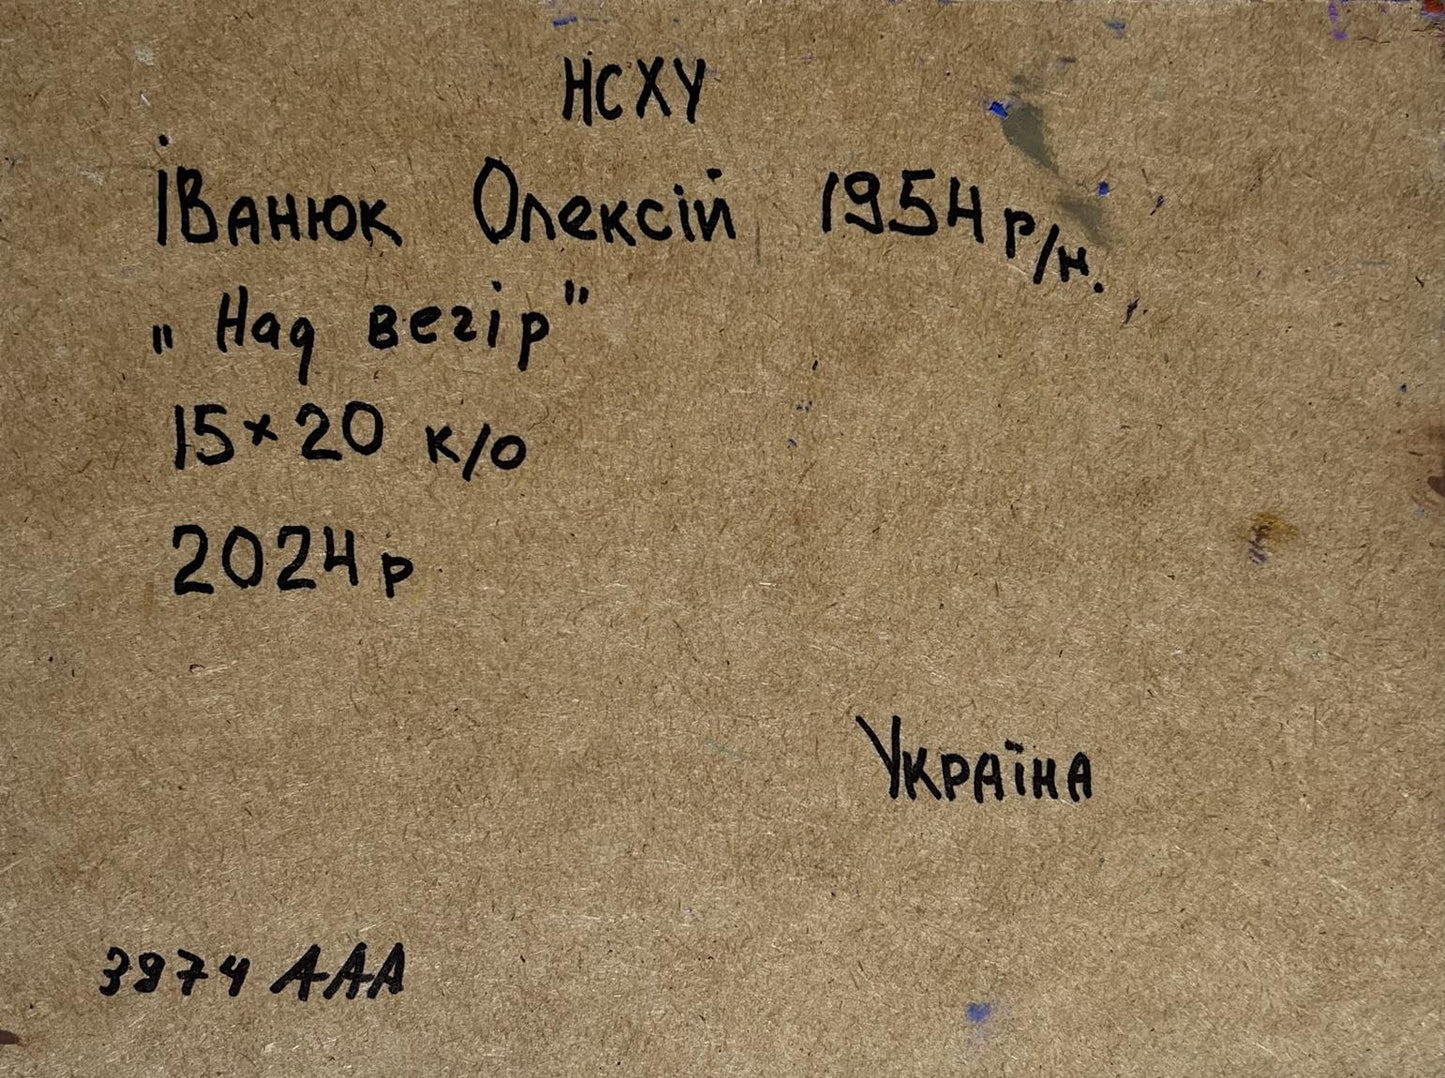 НСХУ
Іванюк Олексій 1954 р/н.
„Над вегір"
15×20 к/о
2024 р
Україна
3974 ААА